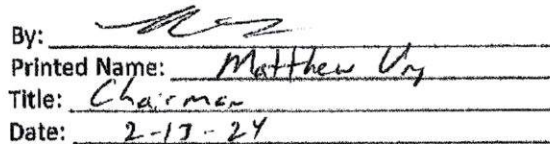 By:
Printed Name: Matthew
Title: Chairman
Date: 2-13-24